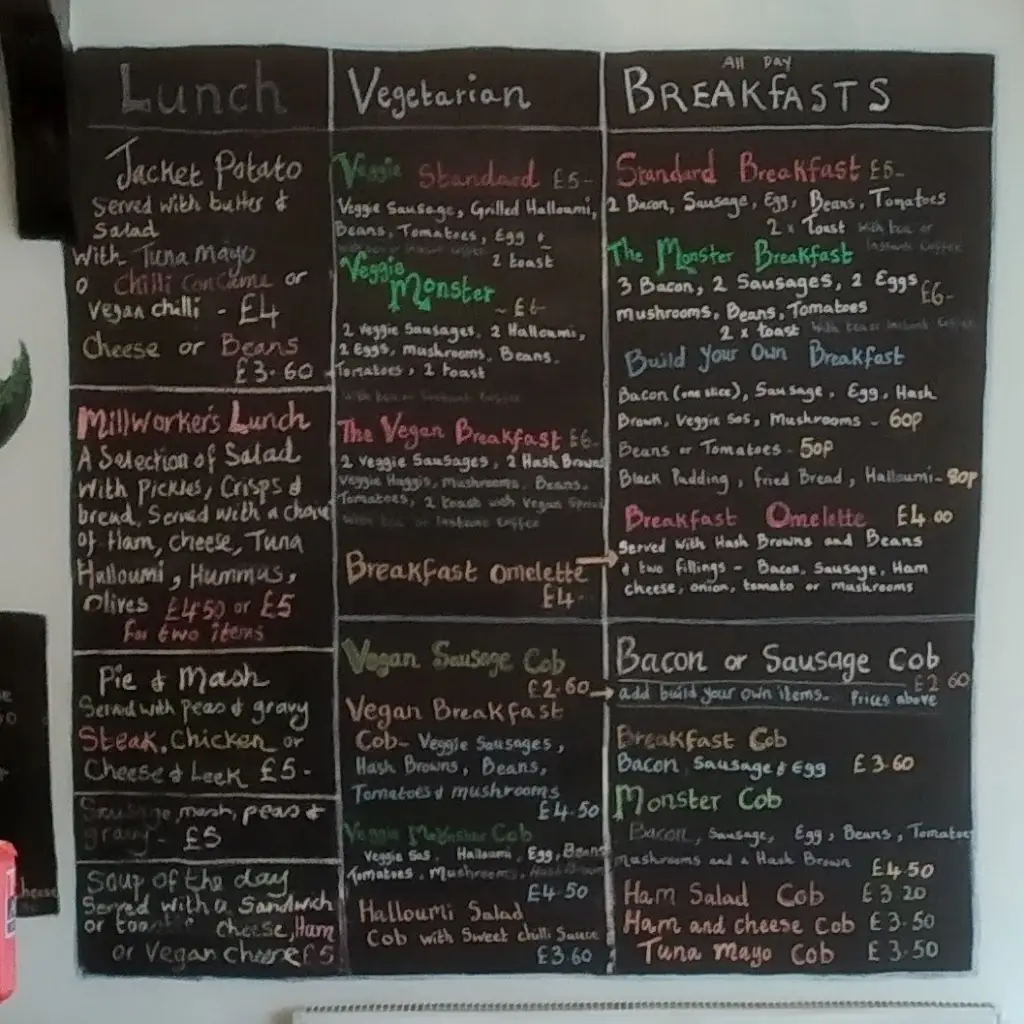 Lunch
Jacket Potato
Served with butter &
Salad
With Tuna mayo
o Chilli ConCarne or
vegan chilli - £4
Cheese or Beans
£3.60
Millworker's Lunch
A Selection of Salad
With Pickles, Crisps &
bread. Served with a choice
of Ham, cheese, Tuna
Halloumi, Hummus,
Olives £4.50 or £5
for two items
Pie & Mash
Served with peas & gravy
Steak, Chicken or
Cheese & Leek £5-
Sausage, mash, peas &
gravy - £5
Soup of the day
Served with a Sandwich
or cheese, Ham
or Vegan cheese £5
Vegetarian
Veggie Standard £5-
Veggie Sausage, Grilled Halloumi,
Beans, Tomatoes, Egg &
2 toast
Veggie
Monster
- £6-
2 veggie Sausages, 2 Halloumi,
2 Eggs, mushrooms, Beans.
Tomatoes, 2 toast
With tea or Instant Coffee
The Vegan Breakfast £6-
2 Veggie Sausages, 2 Hash Browns
Veggie Haggis, Mushrooms, Beans.
Tomatoes, 2 toast with Vegan Spread
With tea or Instant Coffee
Breakfast Omelette
£4-
Vegan Sausage Cob
£2.60
Vegan Breakfast
Cob- Veggie Sausages,
Hash Browns, Beans,
Tomatoes & mushrooms
£4.50
Veggie Monster Cob
Veggie Sos, Halloumi, Egg, Beans
Tomatoes, Mushrooms, Hash Brown
£4.50
Halloumi Salad
Cob with Sweet chilli Sauce
£3.60
All Day
BREAKFASTS
Standard Breakfast £5-
2 Bacon, Sausage, Egg, Beans, Tomatoes
2 x Toast With tea or
Instant Coffee
The Monster Breakfast
3 Bacon, 2 Sausages, 2 Eggs
£6-
mushrooms, Beans, Tomatoes
2 x toast With tea or Instant Coffee
Build Your Own Breakfast
Bacon (one slice), Sausage, Egg, Hash
Brown, Veggie Sos, Mushrooms - 60p
Beans or Tomatoes - 50p
Black Pudding, fried Bread, Halloumi - 80p
Breakfast Omelette £4.00
Served with Hash Browns and Beans
& two fillings - Bacon, Sausage, Ham
cheese, onion, tomato or mushrooms
Bacon or Sausage Cob
£2.60
add build your own items. Prices above
Breakfast Cob
Bacon, Sausage & Egg £3.60
Monster Cob
Bacon, Sausage, Egg, Beans, Tomatoes
Mushrooms and a Hash Brown
£4.50
Ham Salad Cob £3.20
Ham and cheese Cob £3.50
Tuna Mayo Cob £3.50